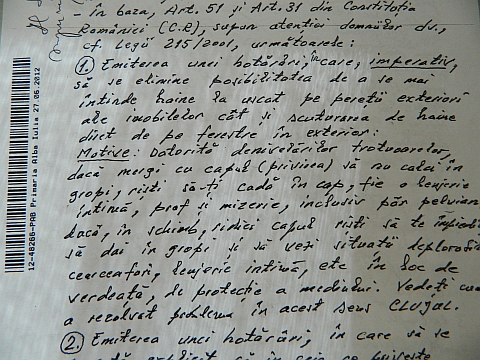 - În baza, Art. 51 și Art. 31 din Constituția
României (C.R), supun atenției domniilor dv.,
cf. Legii 215/2001, următoarele:
1. Emiterea unei hotărâri, în care, imperativ,
să se elimine posibilitatea de a se mai
întinde haine la uscat pe pereții exteriori
ale imobilelor cât și scuturarea de haine
direct de pe ferestre în exterior:
Motive: Datorită denivelărilor trotuarelor,
dacă mergi cu capul (privirea) să nu calci în
gropi, riști să-ți cadă în cap, fie o lenjerie
intimă, praf și mizerie, inclusiv păr pelvian
dacă, în schimb, ridici capul riști să te
să dai în gropi și să vezi situații
cearceafuri, lenjerie intimă, etc în loc de
verdeață, de protecție a mediului. Vedeți cum
a rezolvat problema în acest sens CLUJUL.
2. Emiterea unei hotărâri, în care să se
12-48266-PAB Primaria Alba Iulia 27.06.2012